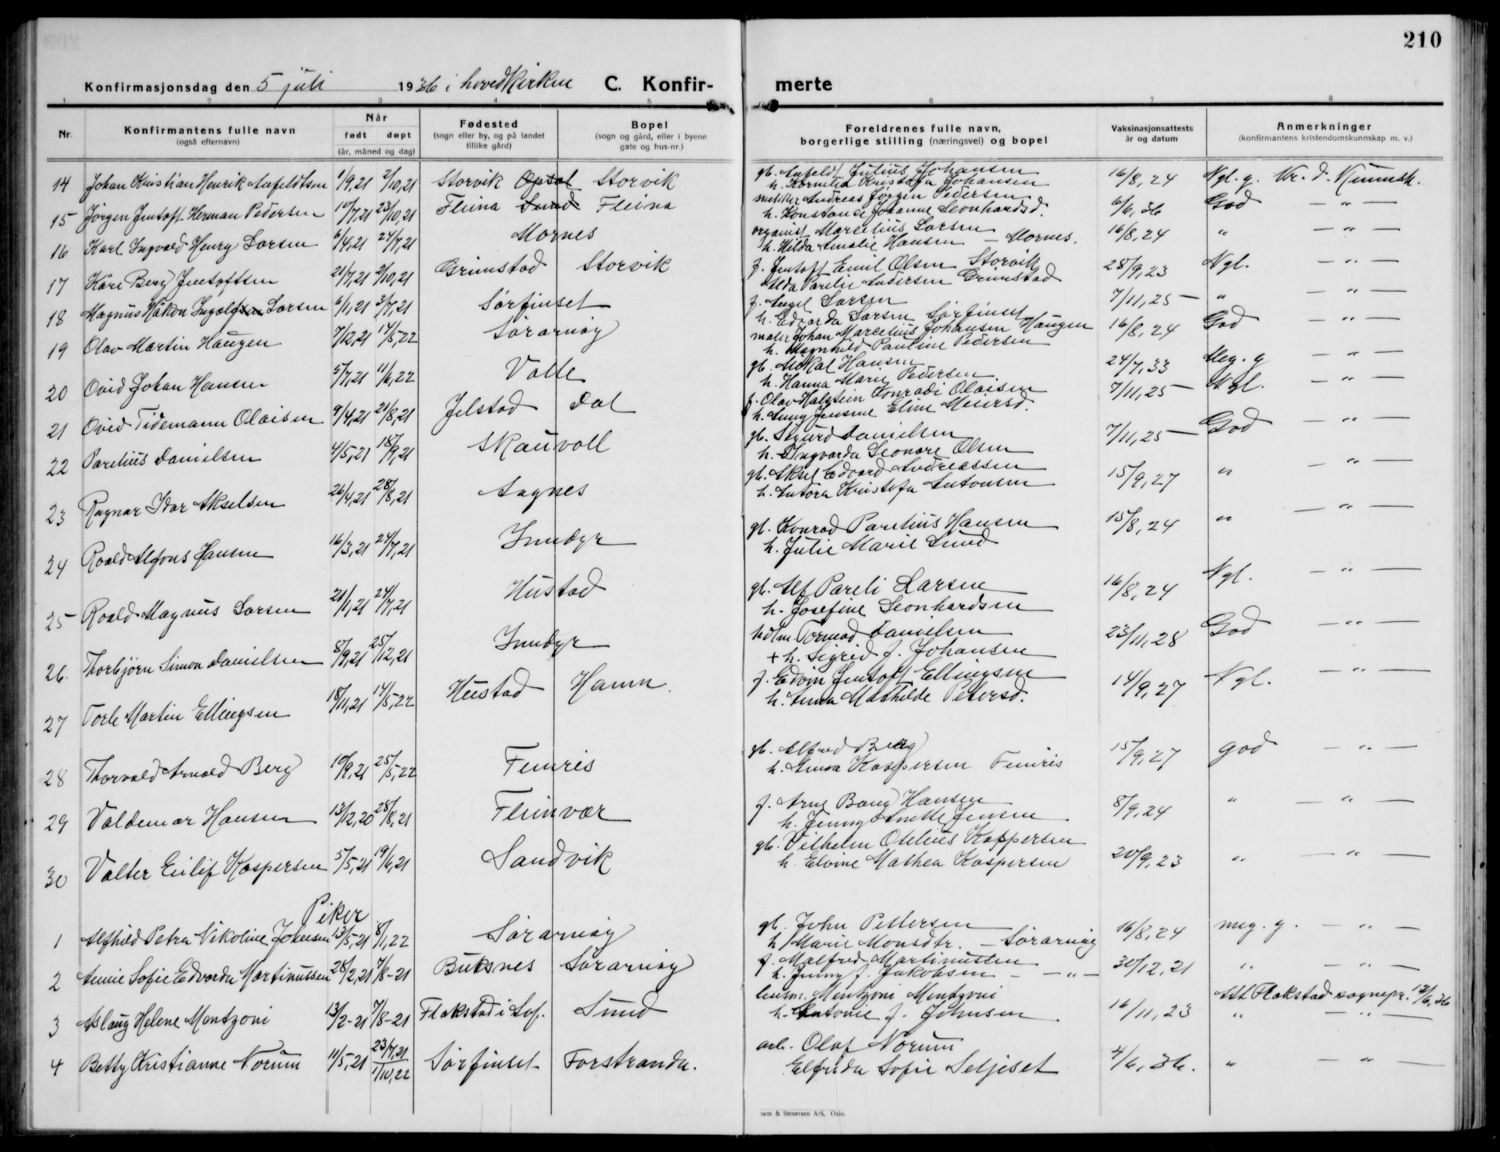 210
Konfirmasjonsdag den 5 juli 1936 i hovedkirken C. Konfirmerte
1 2 3 4 5 6 7 8
Nr. Konfirmantens fulle navn (også efternavn) Når født døpt (år, måned og dag) Fødested (sogn eller by, og på landet tillike gård) Bopel (sogn og gård, eller i byene gate og hus-nr.) Foreldrenes fulle navn, borgerlige stilling (næringsvei) og bopel Vaksinasjonsattests år og datum Anmerkninger (konfirmantens kristendomskunnskap m. v.)
14 Johan Kristian Henrik Anfeldtsen 1/9,21 2/10,21 Storvik Opsal Storvik gb. Anfeldt Julius Johansen 16/8,24 Ngl. g. Kr. d. Kunnsk.
h. Kornelia Kristofa Johansen
15 Jørgen Jentoft Herman Pedersen 10/7,21 23/10,21 Fleina Sund Fleina Andreas Jørgen Pedersen 6/6,36 God — " —
h. Konstance Johanne Leonhardsd.
16 Karl Ingvald Henry Larsen 6/4,21 24/7,21 Mornes organist Marcelius Larsen 16/8,24 " — " —
h. Hilda Amalie Hansen — Mornes.
17 Kåre Berg Jentoftsen 21/7,21 2/10,21 Grimstad Storvik f. Jentoft Emil Olsen Storvik 28/9,23 Ngl. — " —
Alda Parelie Andersen Grimstad
18 Magnus Håkon Ingolf Larsen 6/1,21 3/7,21 Sørfinset f. Angel Larsen 7/11,25 — " — " —
h. Edvarda Larsen Sørfinset
19 Olav Martin Haugen 7/12,21 14/5,22 Sørarnøy maler Johan Marcelius Johansen Haugen 16/8,24 God — " —
h. Magnhild Pauline Pedersen
20 Ovid Johan Hansen 5/7,21 11/6,22 Valle gb. Mokal Hansen 24/7,33 Meg. g — " —
h. Hanna Marie Pedersen
21 Ovid Tidemann Olaisen 9/4,21 21/8,21 Jelstad Dal f. Olav Halstein Konradi Olaisen 7/11,25 — Ngl. — " —
h. Anny Jensine Eline Meiersd.
22 Parelius Danielsen 4/5,21 18/9,21 Skauvoll gb. Sigurd Danielsen 7/11,25 — God — " —
h. Ingvarda Leonore Olsen
23 Ragnar Idar Akselsen 26/4,21 28/8,21 Aagnes gb. Aksel Edvard Andreassen 15/9,27 " — " —
h. Antora Kristofa Antonsen
24 Roald Alfons Hansen 16/3,21 24/7,21 Inndyr gb. Konrad Parelius Hansen 15/8,24 " — " —
h. Julie Marie Lund
25 Roald Magnus Larsen 21/1,21 24/7,21 Hustad gb. Alf Pareli Larsen 16/8,24 Ngl. — " —
h. Josefine Leonhardsen
26. Thorbjørn Simon Danielsen 8/9,21 25/12,21 Inndyr Tormod Danielsen 23/11,28 God — " —
+ h. Sigrid f. Johansen
27 Torle Martin Ellingsen 18/11,21 14/5,22 Hustad Hamn. f. Edvin Jentoft Ellingsen 14/9,27 Ngl. — " —
h. Anna Mathilde Petersd.
28 Thorvald Arnold Berg 10/9,21 25/5,22 Femris gb. Alfred Berg 15/9,27 god — " —
h. Emma Kaspersen Femris
29 Valdemar Hansen 13/12,20 28/8,21 Fleinvær f. Arne Bang Hansen 8/9,24 " — " —
h. Jenny Anette Jensen
30 Valter Eilif Kaspersen 5/5,21 19/6,21 Sandvik gb. Vilhelm Otelius Kaspersen 20/9,23 " — " —
h. Elvine Mathea Kaspersen
Piker
1 Alfhild Petra Nikoline Johnsen 13/5,21 8/1,22 Sørarnøy gb. John Pettersen 16/8,24 meg. g. — " —
h. Marie Monsdtr. — Sørarnøy
2 Annie Sofie Edvarda Martinussen 28/2,21 7/8-21 Buksnes Sørarnøy f. Malfred Martinussen 30/12,21 " — " —
h. Jenny f. Jakobsen — " —
3 Aslaug Helene Mentzoni 13/2-21 7/8-21 Flakstad i Lof. Sund lensm. Mentzoni Mentzoni 16/11,23 Att. Flakstad sognepr. 12/6,36
h. Antonie f. Johnsen " — " —
4 Betty Kristianne Norum 11/5,21 23/7,21 1/10,22 Sørfinset Forstranda. arb. Olaf Norum 4/6,36. " — " —
Elfrida Sofie Seljeset
Sem & Stenersen A/S, Oslo.